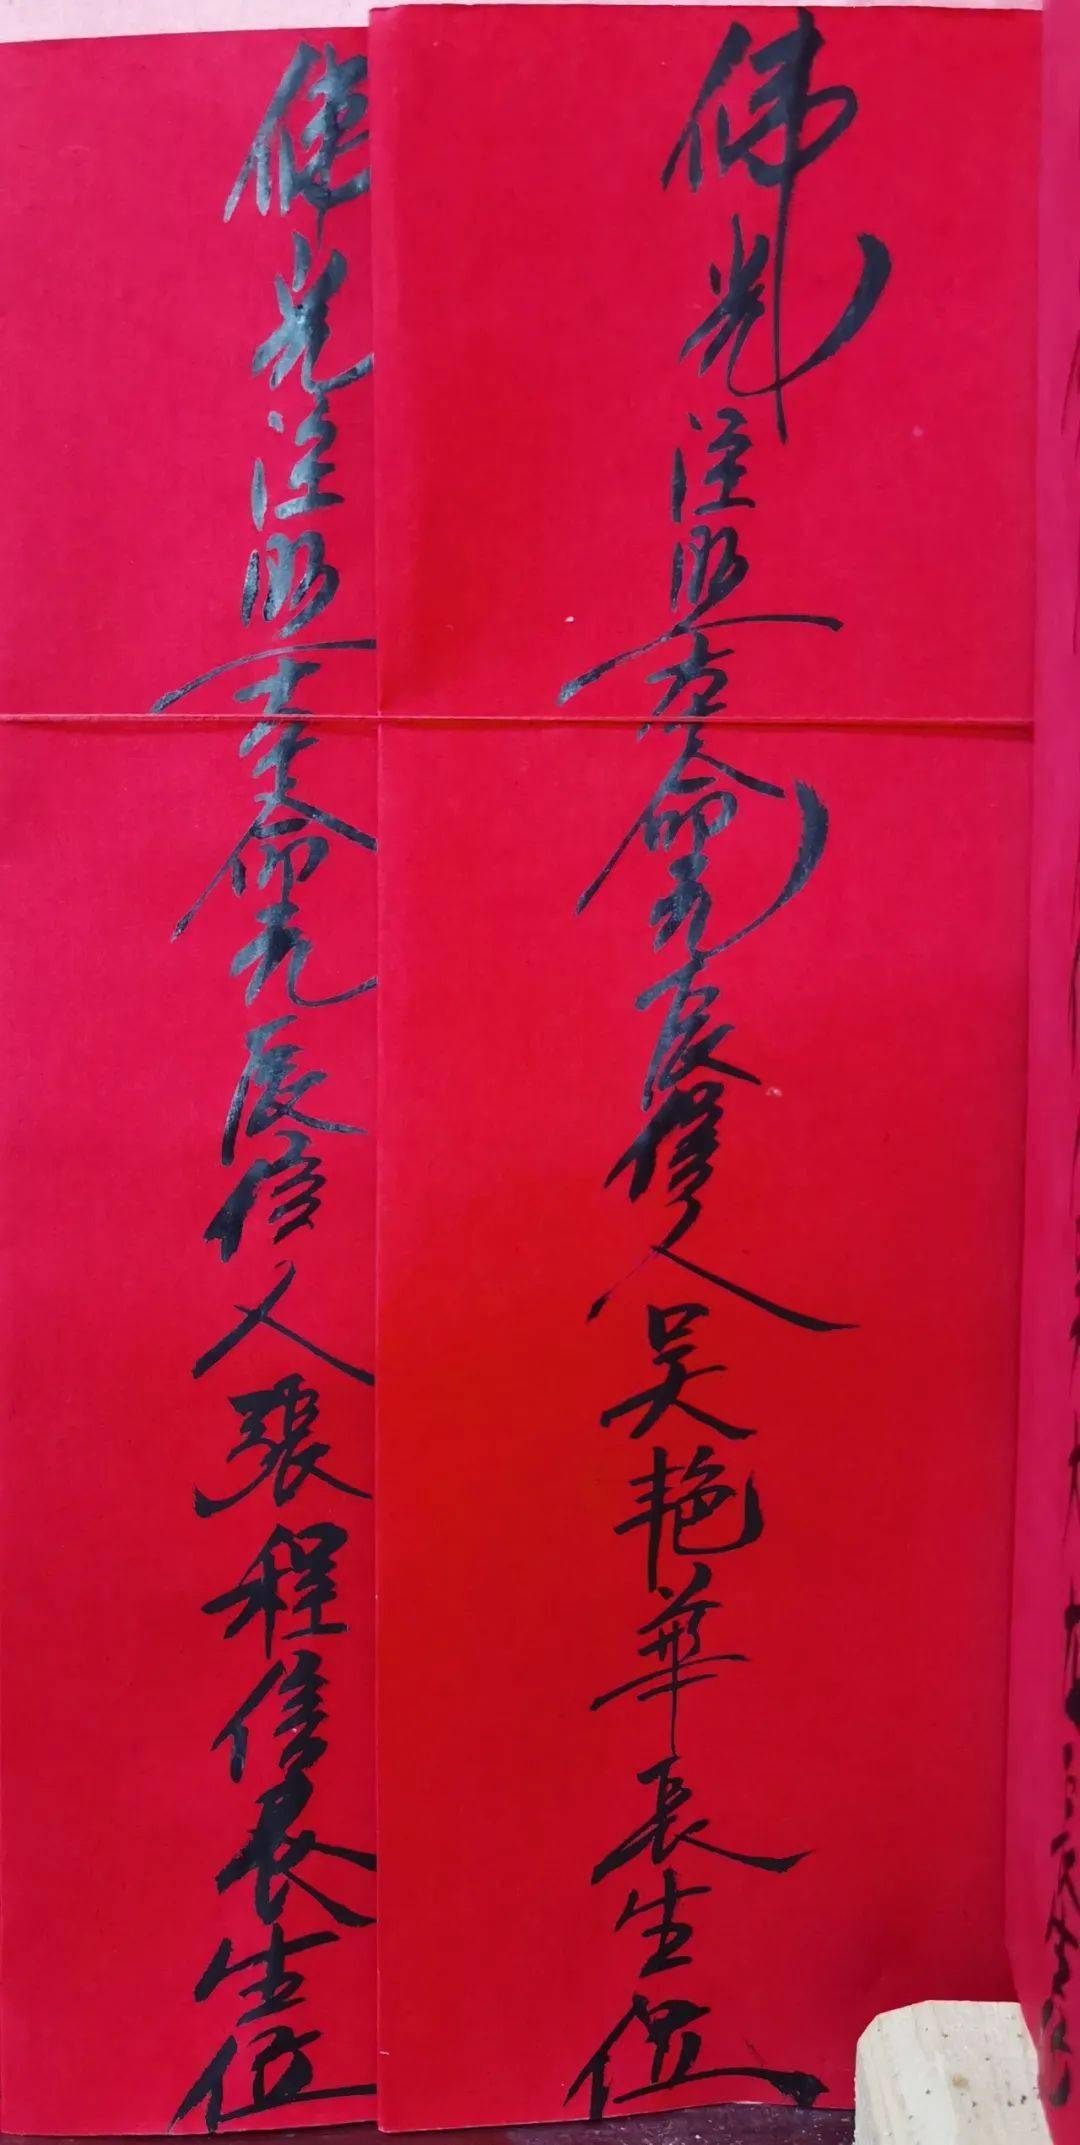 佛光注照本命元辰信人吴艳華長生位
佛光注照本命元辰信人張程信長生位